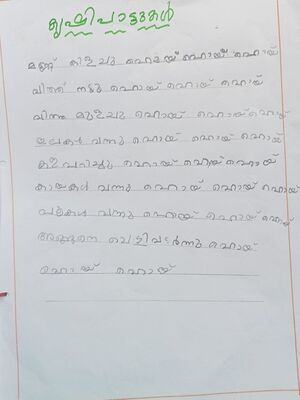 കൃഷിപ്പാട്ടുകൾ
മണ്ണ് കിളച്ചു ഹൊയ് ഹൊയ് ഹൊയ്
വിത്ത് നട്ടു ഹൊയ് ഹൊയ് ഹൊയ്
വിത്തു മുളച്ചു ഹൊയ് ഹൊയ് ഹൊയ്
ഇലകൾ വന്നു ഹൊയ് ഹൊയ് ഹൊയ്
കള പറിച്ചു ഹൊയ് ഹൊയ് ഹൊയ്
കായകൾ വന്നു ഹൊയ് ഹൊയ് ഹൊയ്
പൂകൾ വന്നു ഹൊയ് ഹൊയ് ഹൊയ്
അങ്ങനെ ഹൊയ്
ഹൊയ് ഹൊയ്